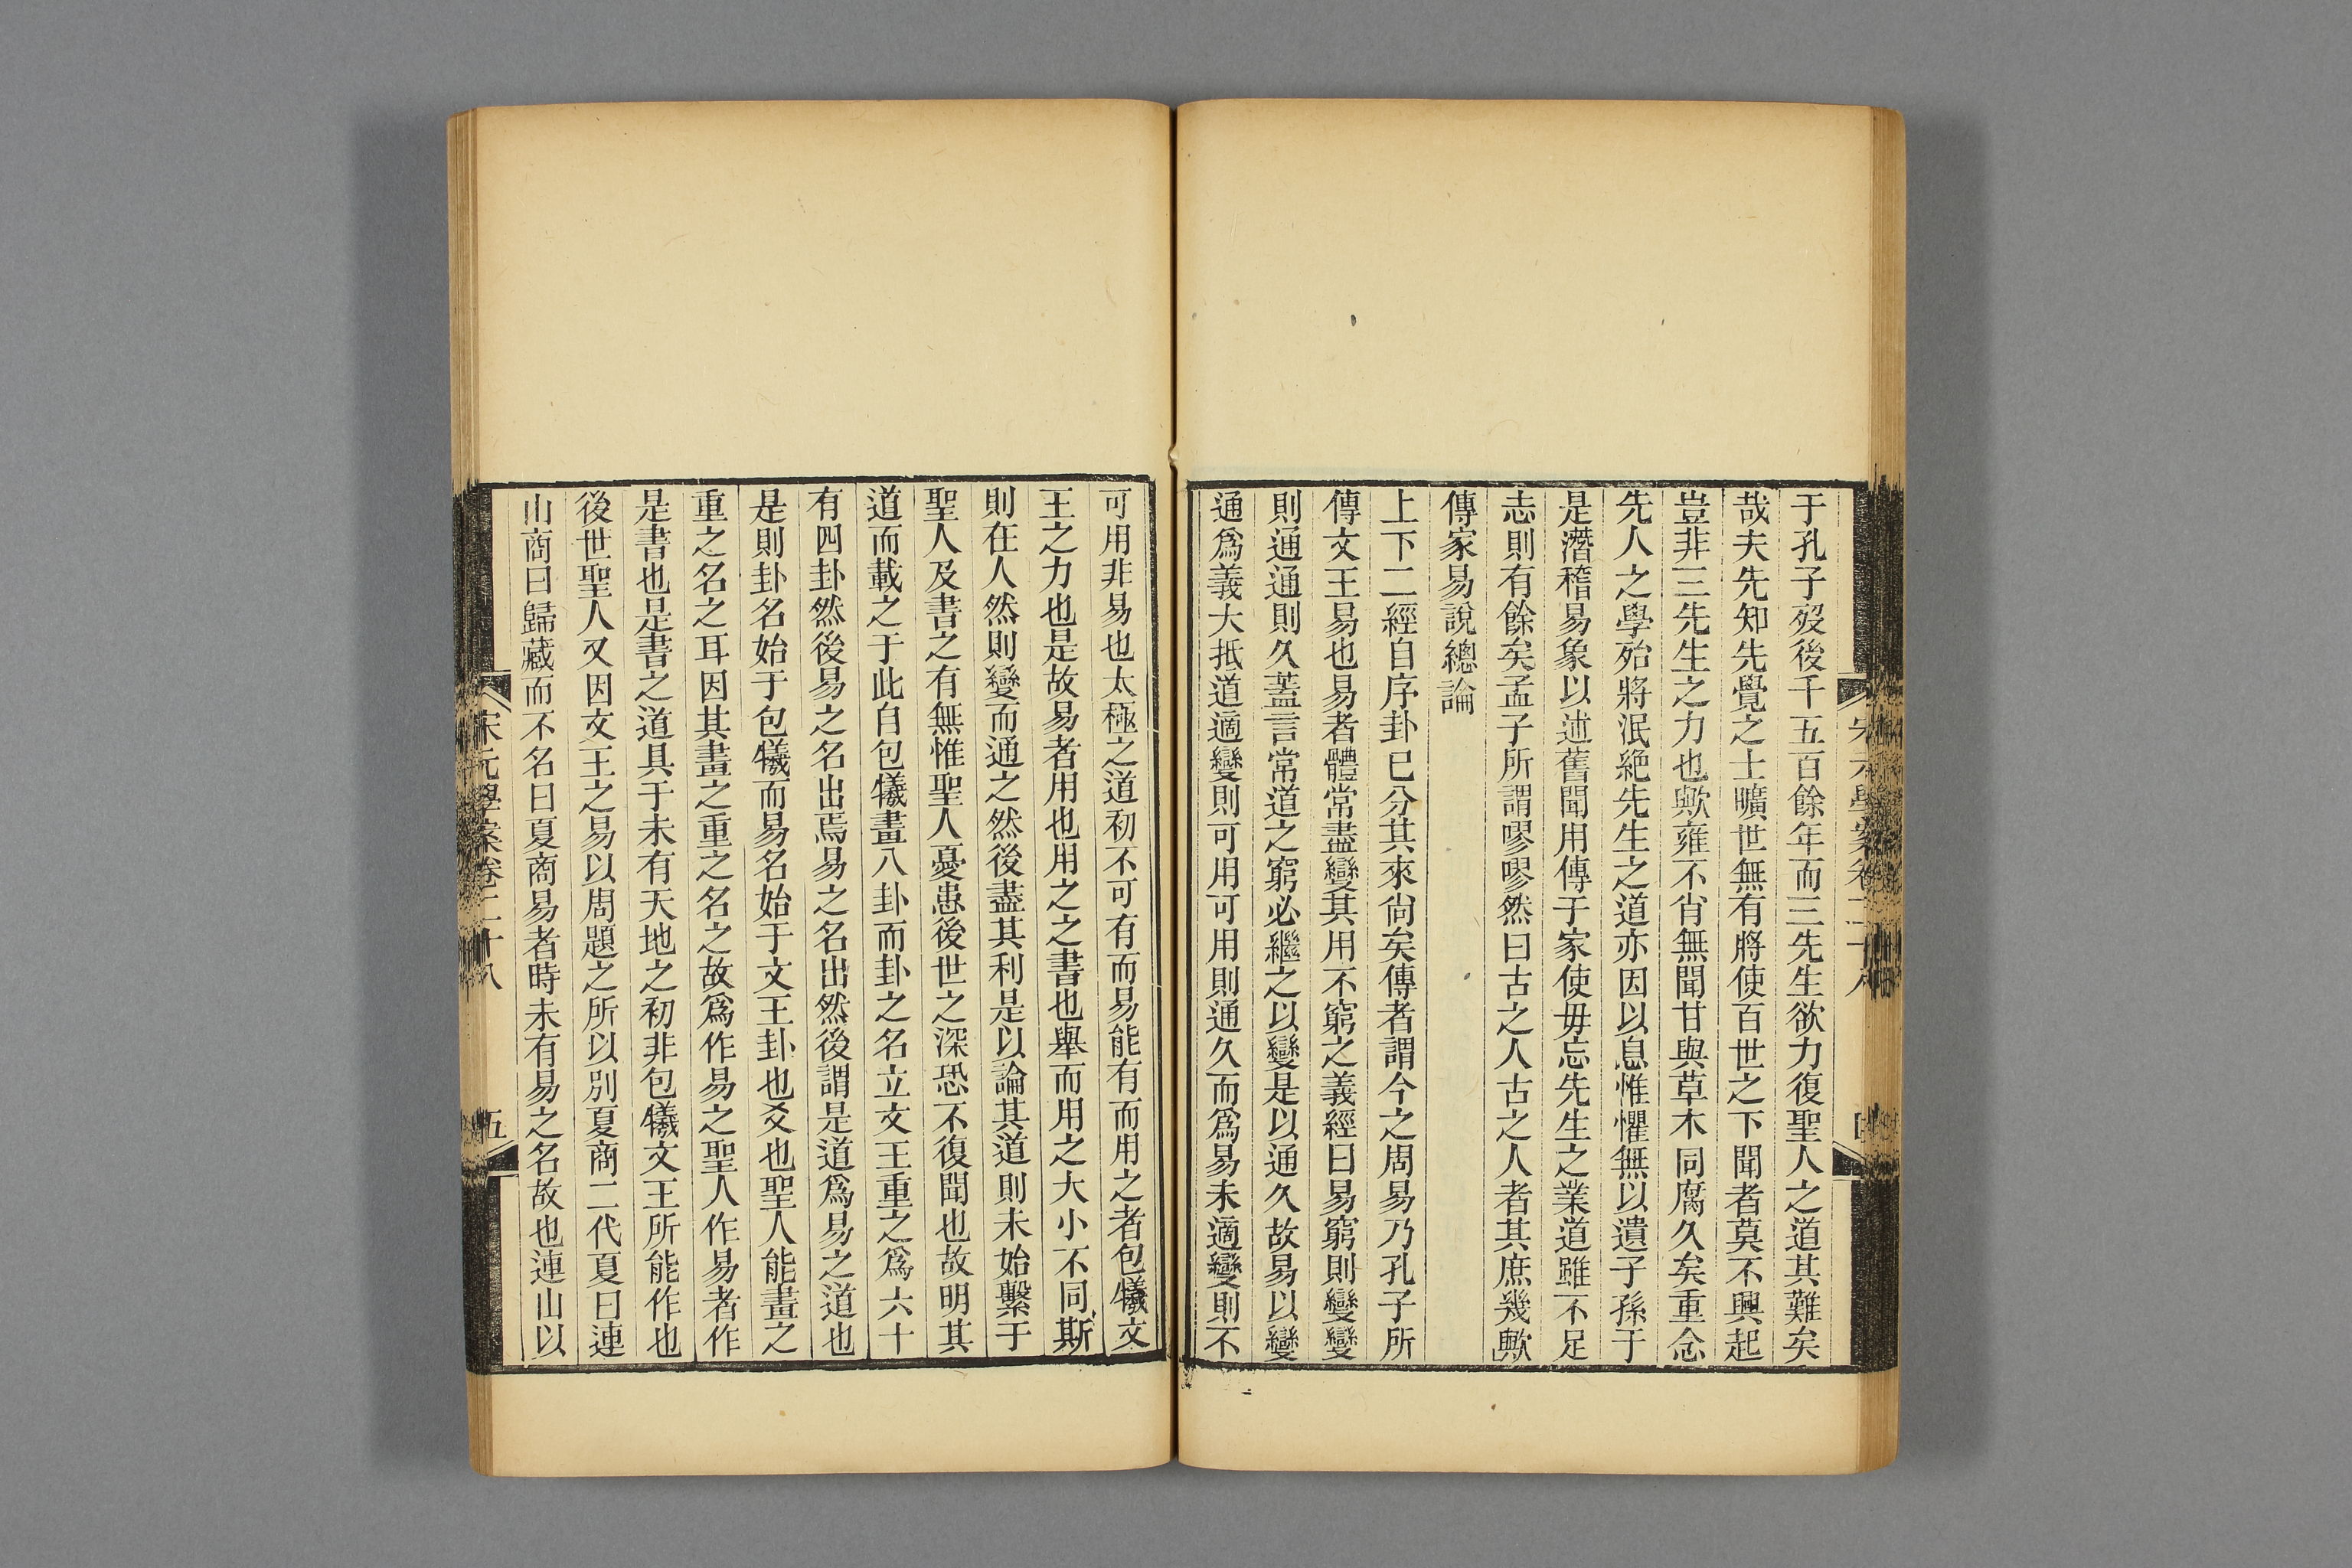 于孔子歿後千五百餘年而三先生欲力復聖人之道其難矣
哉夫先知先覺之士曠世無有將使百世之下聞者莫不興起
豈非三先生之力也歟雍不肖無聞甘與草木同腐久矣重念
先人之學殆將泯絶先生之道亦因以息惟懼無以遺子孫于
是潛稽易象以述舊聞用傳于家使毋忘先生之業道雖不足
志則有餘矣孟子所謂嘐嘐然曰古之人古之人者其庶幾歟
傳家易說總論
上下二經自序卦已分其來尙矣傳者謂今之周易乃孔子所
傳文王易也易者體常盡變其用不窮之義經曰易窮則變變
則通通則久蓋言常道之窮必繼之以變是以通久故易以變
通爲義大抵道適變則可用可用則通久而爲易未適變則不
可用非易也太極之道初不可有而易能有而用之者包犧文
王之力也是故易者用也用之之書也舉而用之大小不同斯
則在人然則變而通之然後盡其利是以論其道則未始繫于
聖人及書之有無惟聖人憂患後世之深恐不復聞也故明其
道而載之于此自包犧畫八卦而卦之名立文王重之爲六十
有四卦然後易之名出焉易之名出然後謂是道爲易之道也
是則卦名始于包犧而易名始于文王卦也爻也聖人能畫之
重之名之耳因其畫之重之名之故爲作易之聖人作易者作
是書也是書之道具于未有天地之初非包犧文王所能作也
後世聖人又因文王之易以周題之所以別夏商二代夏曰連
山商曰歸藏而不名曰夏商易者時未有易之名故也連山以
宋元學案卷二十八
五